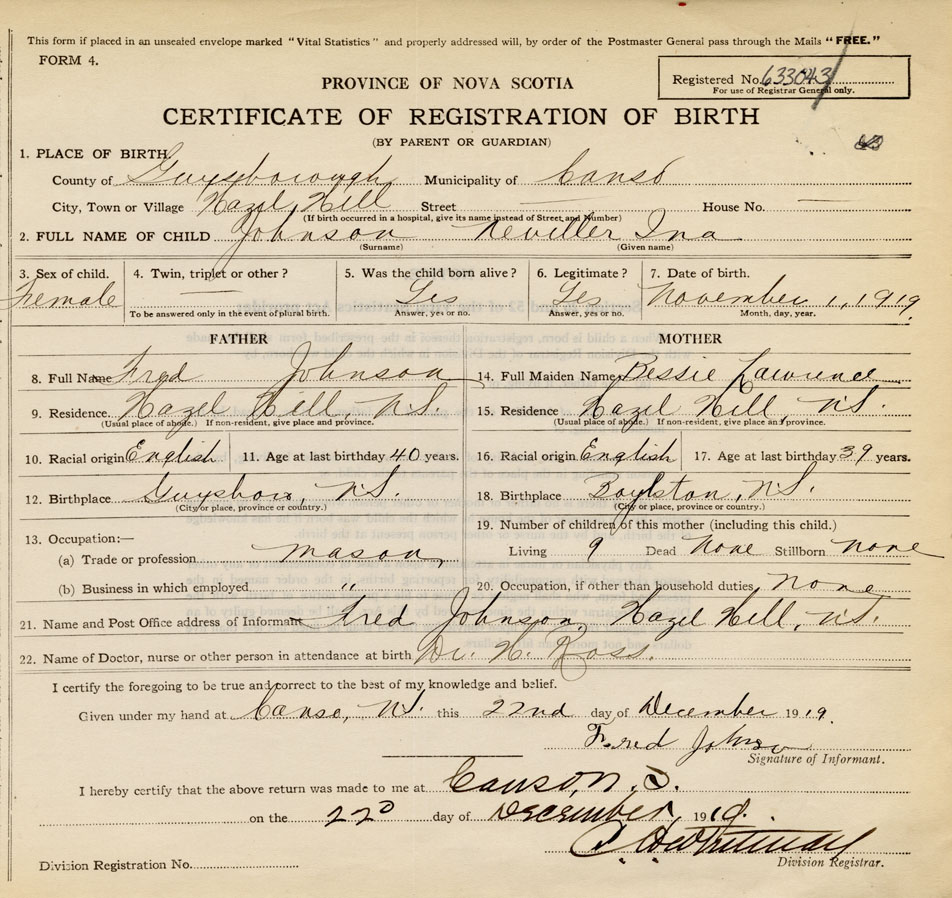 This form if placed in an unsealed envelope marked "Vital Statistics" and properly addressed will, by order of the Postmaster General pass through the Mails "FREE."
FORM 4.
Registered No. 633043
For use of Registrar General only.
PROVINCE OF NOVA SCOTIA
CERTIFICATE OF REGISTRATION OF BIRTH
(BY PARENT OR GUARDIAN)
1. PLACE OF BIRTH
County of Guysborough Municipality of Canso
City, Town or Village Hazel Hill Street House No.
(If birth occurred in a hospital, give its name instead of Street and Number)
2. FULL NAME OF CHILD Johnson Neviller Ina
(Surname) (Given name)
3. Sex of child. 4. Twin, triplet or other? 5. Was the child born alive? 6. Legitimate? 7. Date of birth.
Female Yes Yes November 1, 1919
To be answered only in the event of plural birth. Answer, yes or no. Answer, yes or no. Month, day, year.
FATHER MOTHER
8. Full Name Fred Johnson 14. Full Maiden Name Bessie Lawrence
9. Residence. Hazel Hill, N.S. 15. Residence Hazel Hill, N.S.
(Usual place of abode.) If non-resident, give place and province. (Usual place of abode.) If non-resident, give place and province.
10. Racial origin English 11. Age at last birthday 40 years. 16. Racial origin English 17. Age at last birthday 39 years.
12. Birthplace Guysboro, N.S. 18. Birthplace Boylston, N.S.
(City or place, province or country.) (City or place, province or country.)
13. Occupation:— 19. Number of children of this mother (including this child.)
(a) Trade or profession mason Living 9 Dead None Stillborn none
(b) Business in which employed " 20. Occupation, if other than household duties none
21. Name and Post Office address of Informant Fred Johnson, Hazel Hill, N.S.
22. Name of Doctor, nurse or other person in attendance at birth Dr. H. Ross.
I certify the foregoing to be true and correct to the best of my knowledge and belief.
Given under my hand at Canso, N.S. this 22nd day of December 1919.
Fred Johnson
Signature of Informant.
I hereby certify that the above return was made to me at Canso, N.S.
on the 22D day of December, 1919.
Division Registration No. Division Registrar.